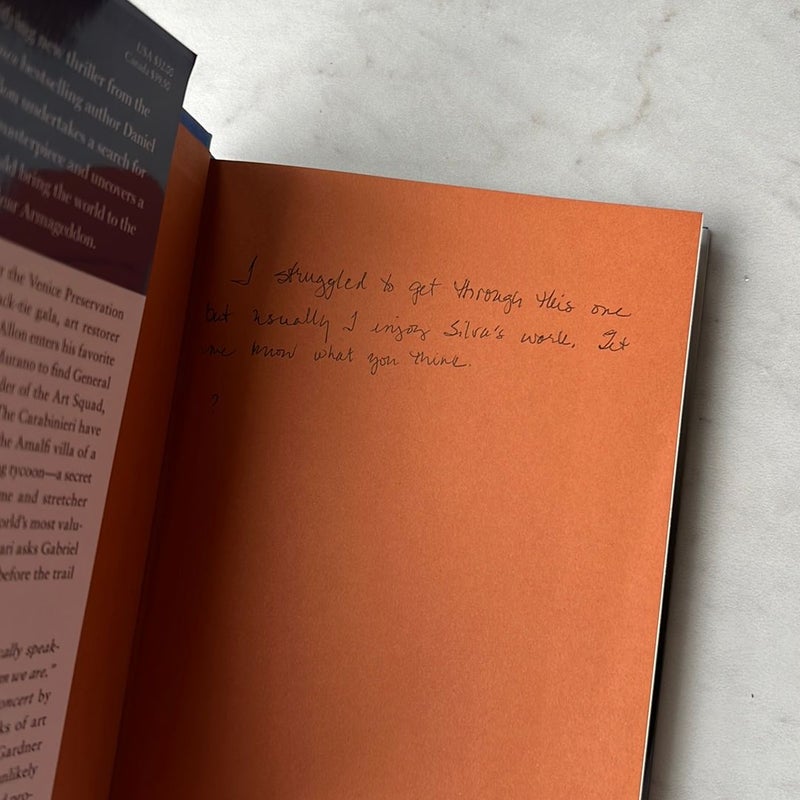 USA $32.00
Canada $39.50
new thriller from the
bestselling author Daniel
undertakes a search for
and uncovers a
bring the world to the
Armageddon.
the Venice Preservation
gala, art restorer
Allon enters his favorite
Murano to find General
of the Art Squad,
The Carabinieri have
the Amalfi villa of a
tycoon—a secret
and stretcher
most valu-
asks Gabriel
before the trail
speak-
we are."
concert by
of art
Gardner
I struggled to get through this one
but usually I enjoy Silva's work. Let
me know what you think.
?